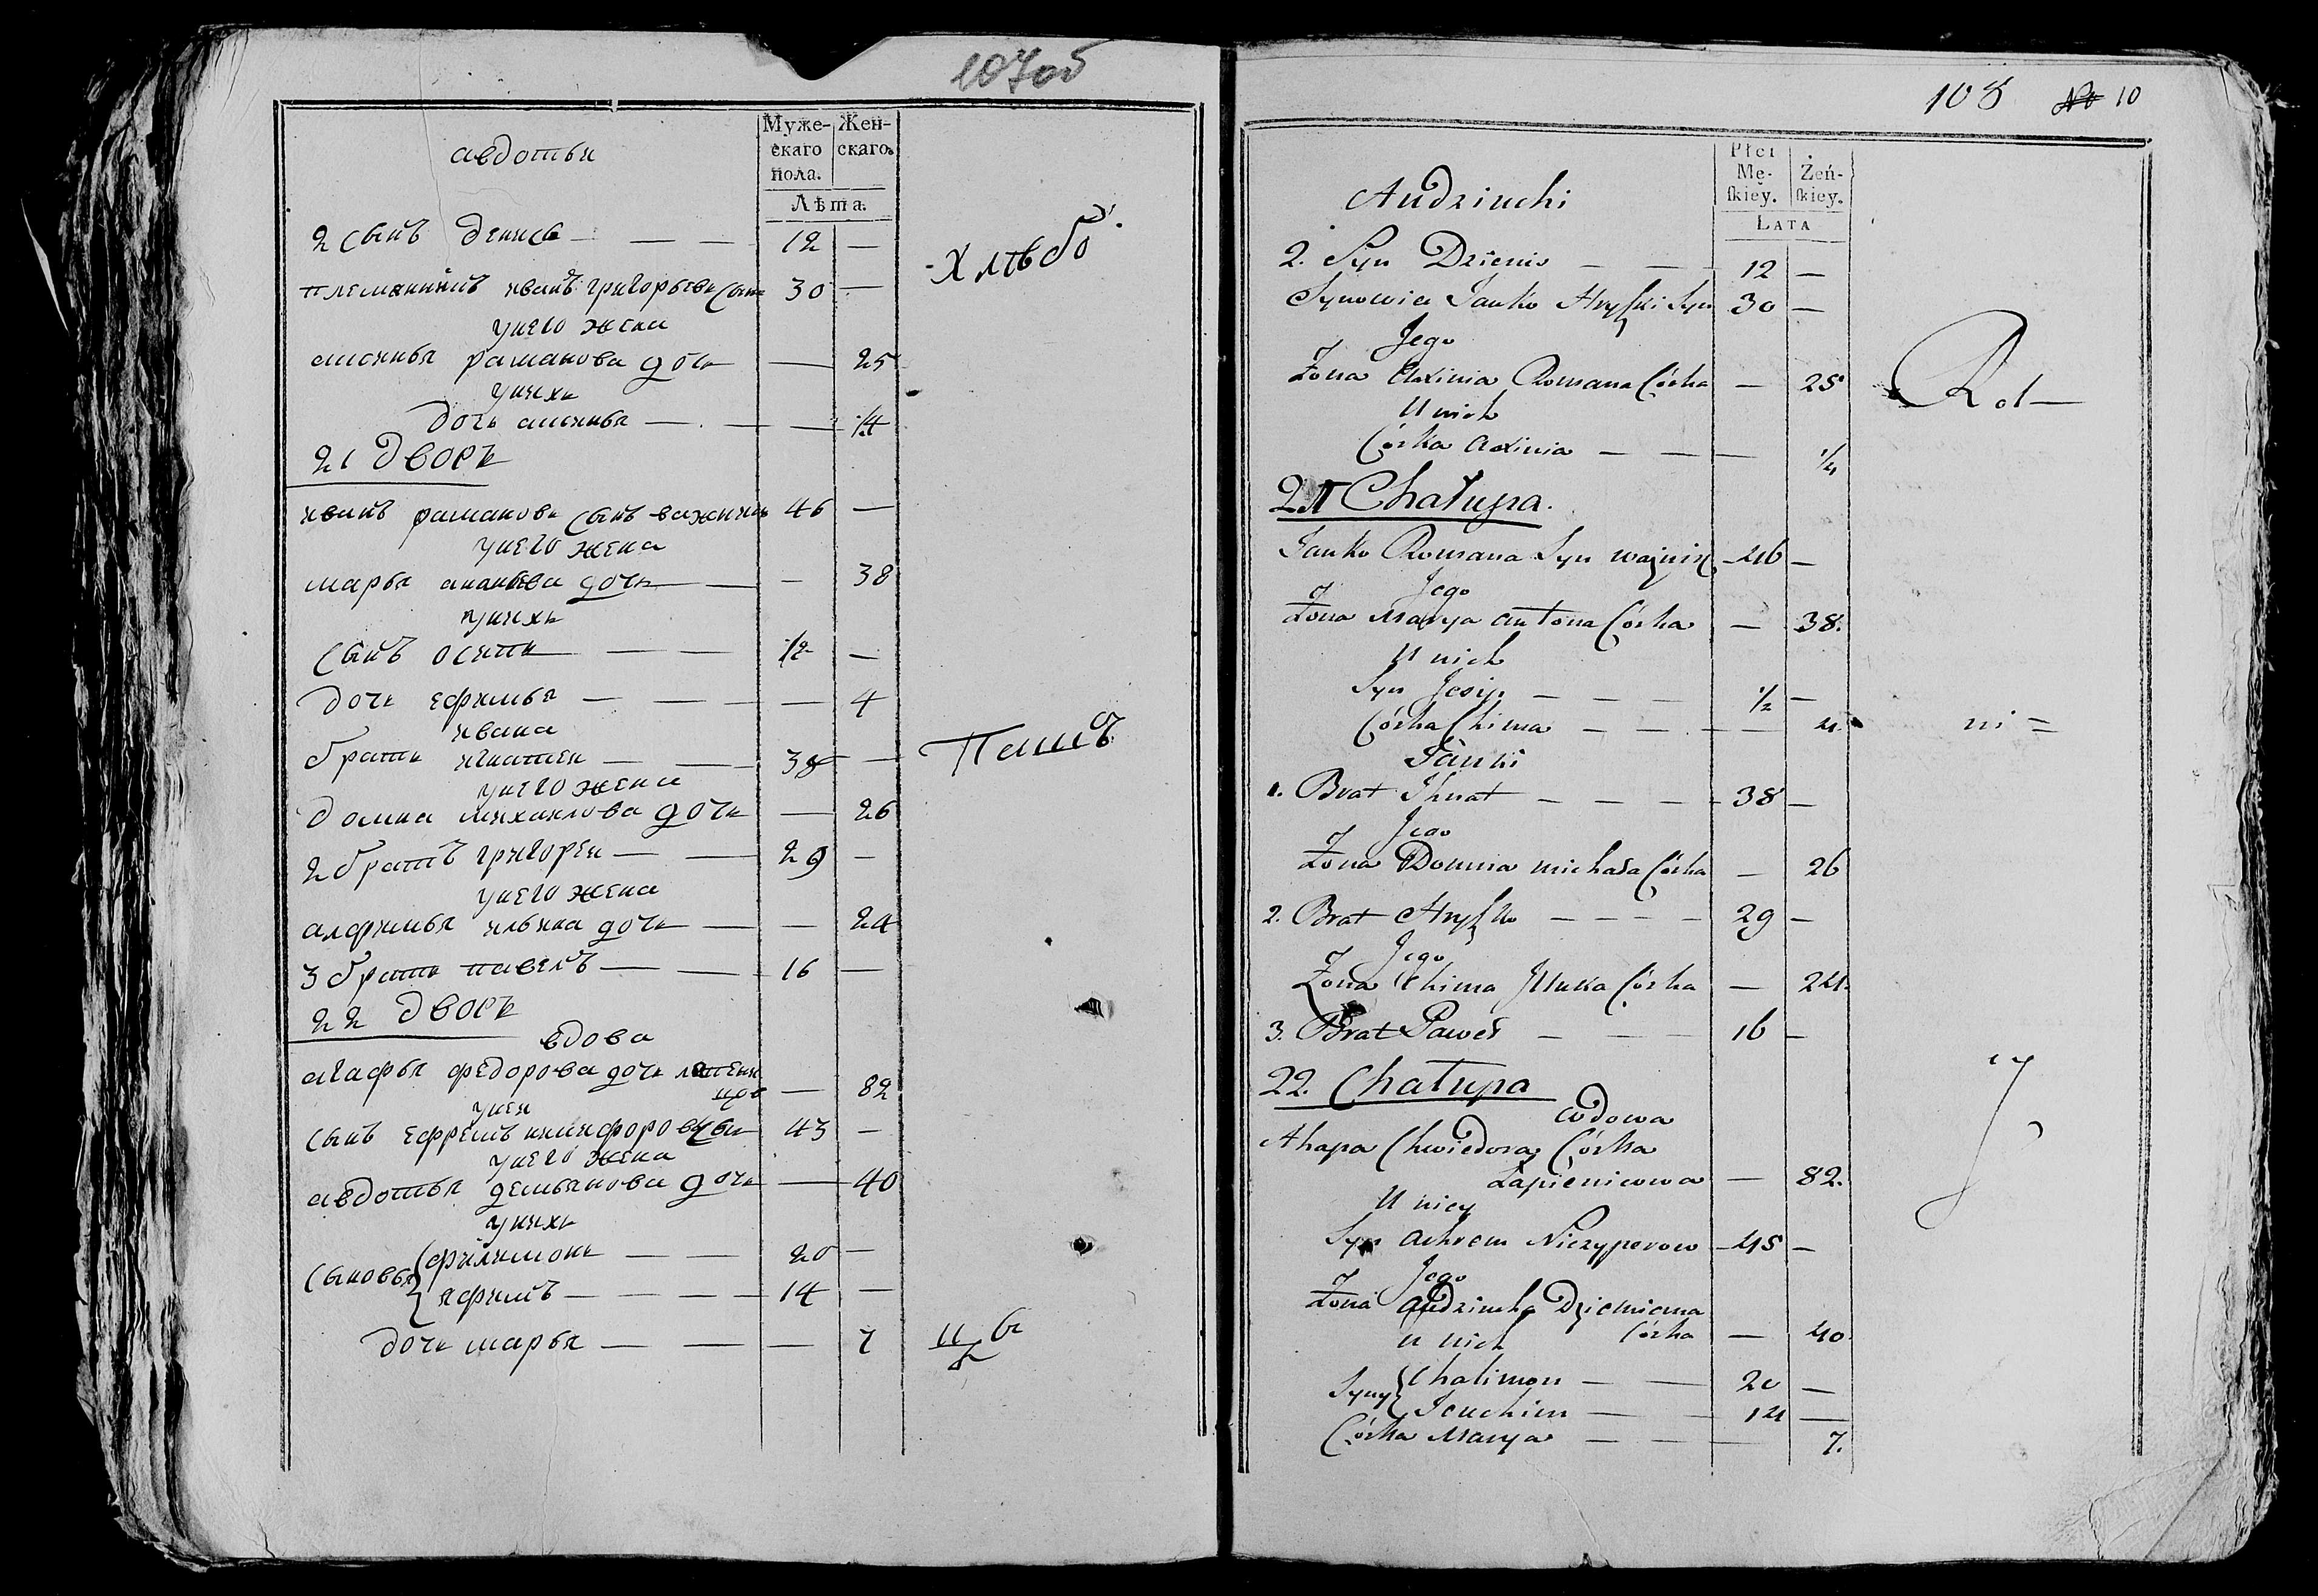 107об
авдотьи
Муже-
скаго
пола.
Жен-
скаго.
Лѣта.
2 сынъ денись — — — 12 —
племянникъ иванъ григорьевъ сынъ 30 —
унего жена
аксинья раманова дочь — 25
унихъ
дочь аксинья — — — 1/4
-Хлѣбо
21 дворъ
иванъ рамановъ сынъ важникъ 46 —
унего жена
марья ананьева дочь — — 38
унихъ
сынъ осипъ — — 1/2 —
дочь ефимья — — — — 4
ивана
братъ игнатеи — — 38 —
унего жена
домна михаилова дочь — 26
2 братъ григореи — — 29 —
унего жена
алфимья ильина дочь — — 24
3 братъ павелъ — — 16 —
22 дворъ
вдова
агафья федорова дочь
— 82
унеи
сынъ ефремъ никифоровъ сынъ 43 —
унего жена
авдотья демьянова дочь — 40
унихъ
сыновья { филимонъ — — 20 —
{ ефимъ — — — — 14 —
дочь марья — — — 7
108 No 10
Płci
Mę-
ſkiey.
Żeń-
ſkiey.
Lata
Audziuchi
2. Syn Dzienis — — 12 —
Synowiec Janko Hryſzki Syn 30 —
Jego
Żona Axinia Romana Córka — 25
U nich
Córka Axinia — — — 1/4
21 Chałupa.
Janko Romana Syn Ważnik — 46 —
Jego
Żona Marya Antona Córka — 38.
U nich
Syn Josip — — — 1/2 —
Córka Chima — — — — 4.
Janki
1. Brat Ihnat — — — — 38 —
Jego
Żona Domnia Michała Córka — 26
2. Brat Hryſzko — — — — 29 —
Jego
Żona Chima Jlluka Córka — 24.
3. Brat Paweł — — — 16 —
22. Chałupa
Wdowa
Ahapa Chwiedora Córka
Łapienicowa — 82.
U niey
Syn Achrem Niczyporow — 45 —
Jego
Żona Audziucha Dziemiana
Córka — 40.
U nich
Syny { Chalimon — — 20 —
{ Jeuchim — — 14 —
Córka Marya — — — 7.